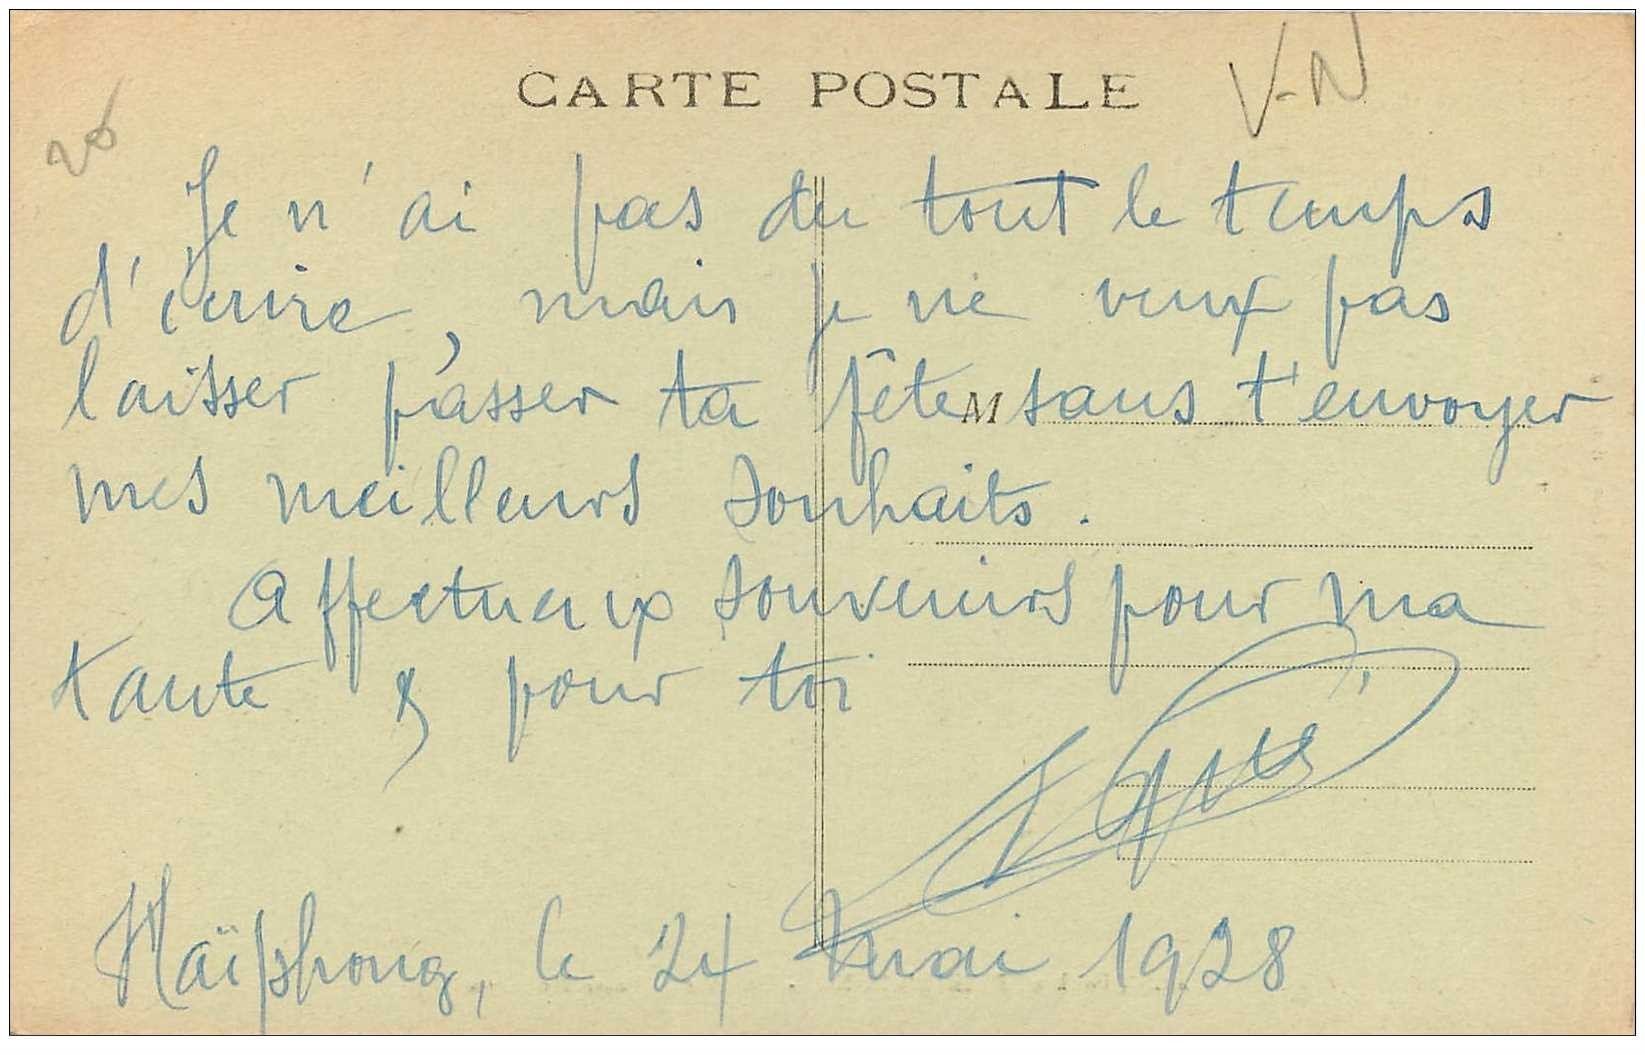 CARTE POSTALE
V-N
20
Je n'ai pas du tout le temps
d'écrire, mais je ne veux pas
laisser passer ta fête M sans t'envoyer
mes meilleurs souhaits.
Affectueux souvenirs pour ma
tante & pour toi
Haïphong, le 24 mai 1928